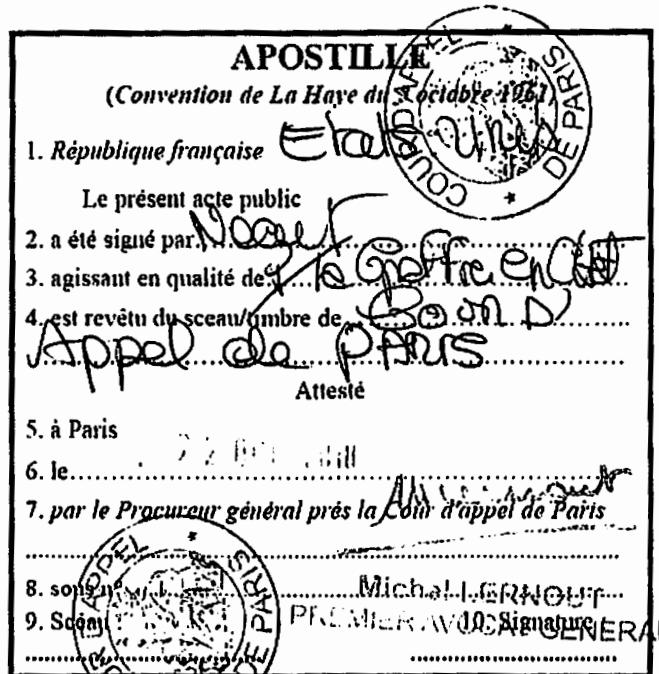 APOSTILLE
(Convention de La Haye du 5 octobre 1961)
1. République française Etats Unis
Le présent acte public
2. a été signé par
3. agissant en qualité de le Greffier en Chef
4. est revêtu du sceau/timbre de Cour D'
Appel de PARIS
Attesté
5. à Paris
6. le 22
7. par le Procureur général près la Cour d'appel de Paris
8. sous n°
Michel LERNOUT
9. Sceau
10. Signature
PREMIER AVOCAT GENERAL
COUR D'APPEL DE PARIS
COUR D'APPEL DE PARIS